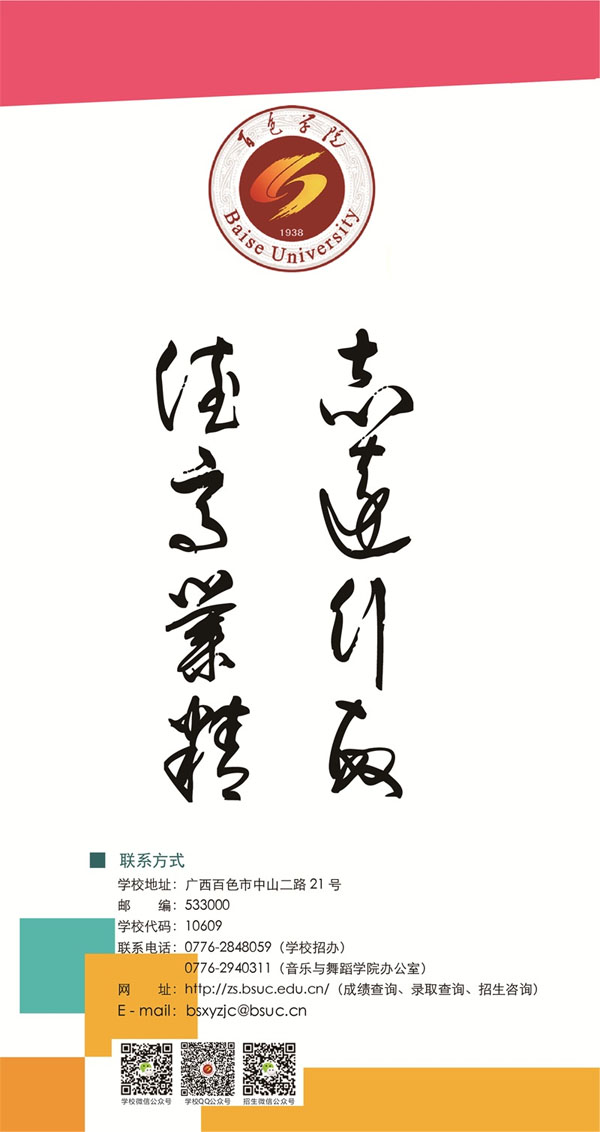 百色学院
1938
Baise University
志远行敏
德高业精
联系方式
学校地址：广西百色市中山二路 21 号
邮　　编：533000
学校代码：10609
联系电话：0776-2848059（学校招办）
0776-2940311（音乐与舞蹈学院办公室）
网　　址：http://zs.bsuc.edu.cn/（成绩查询、录取查询、招生咨询）
E - mail：bsxyzjc@bsuc.cn
学校微信公众号　学校QQ公众号　招生微信公众号